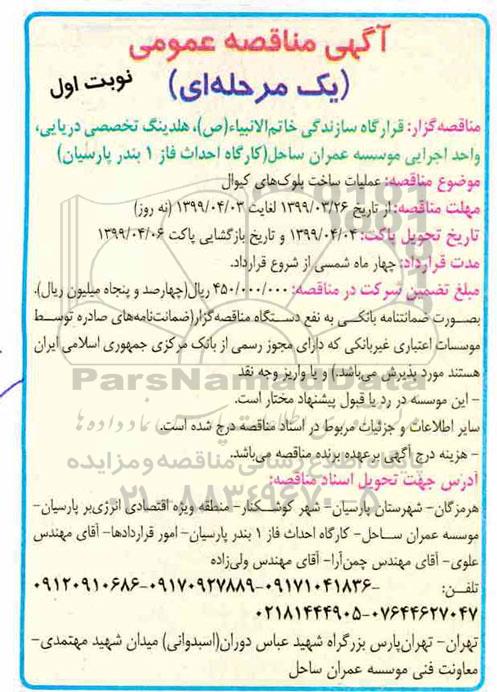 آگهی مناقصه عمومی
(یک مرحله‌ای)
نوبت اول
مناقصه‌گزار: قرارگاه سازندگی خاتم‌الانبیاء(ص)، هلدینگ تخصصی دریایی،
واحد اجرایی موسسه عمران ساحل(کارگاه احداث فاز ۱ بندر پارسیان)
موضوع مناقصه: عملیات ساخت بلوک‌های کیوال
مهلت مناقصه: از تاریخ ۱۳۹۹/۰۳/۲۶ لغایت ۱۳۹۹/۰۴/۰۳ (نه روز)
تاریخ تحویل پاکت: ۱۳۹۹/۰۴/۰۴ و تاریخ بازگشایی پاکت ۱۳۹۹/۰۴/۰۶
مدت قرارداد: چهار ماه شمسی از شروع قرارداد.
مبلغ تضمین شرکت در مناقصه: ۴۵۰/۰۰۰/۰۰۰ ریال(چهارصد و پنجاه میلیون ریال).
بصورت ضمانتنامه بانکی به نفع دستگاه مناقصه‌گزار(ضمانت‌نامه‌های صادره توسط
موسسات اعتباری غیربانکی که دارای مجوز رسمی از بانک مرکزی جمهوری اسلامی ایران
هستند مورد پذیرش می‌باشد.) و یا واریز وجه نقد
- این موسسه در رد یا قبول پیشنهاد مختار است.
سایر اطلاعات و جزئیات مربوط در اسناد مناقصه درج شده است.
- هزینه درج آگهی برعهده برنده مناقصه می‌باشد.
آدرس جهت تحویل اسناد مناقصه:
هرمزگان- شهرستان پارسیان- شهر کوشکنار- منطقه ویژه اقتصادی انرژی‌بر پارسیان-
موسسه عمران ساحل- کارگاه احداث فاز ۱ بندر پارسیان- امور قراردادها- آقای مهندس
علوی- آقای مهندس چمن‌آرا- آقای مهندس ولی‌زاده
تلفن: ۰۹۱۲۰۹۱۰۶۸۶-۰۹۱۷۰۹۲۷۸۸۹-۰۹۱۷۱۰۴۱۸۳۶-
۰۲۱۸۱۴۴۴۹۰۵-۰۷۶۴۴۶۲۷۰۴۷
تهران- تهران‌پارس بزرگراه شهید عباس دوران(اسبدوانی) میدان شهید مهتمدی-
معاونت فنی موسسه عمران ساحل
ParsNamadData
پایگاه اطلاع رسانی مناقصه و مزایده
۰۲۱-۸۸۳۴۹۶۷۰-۵